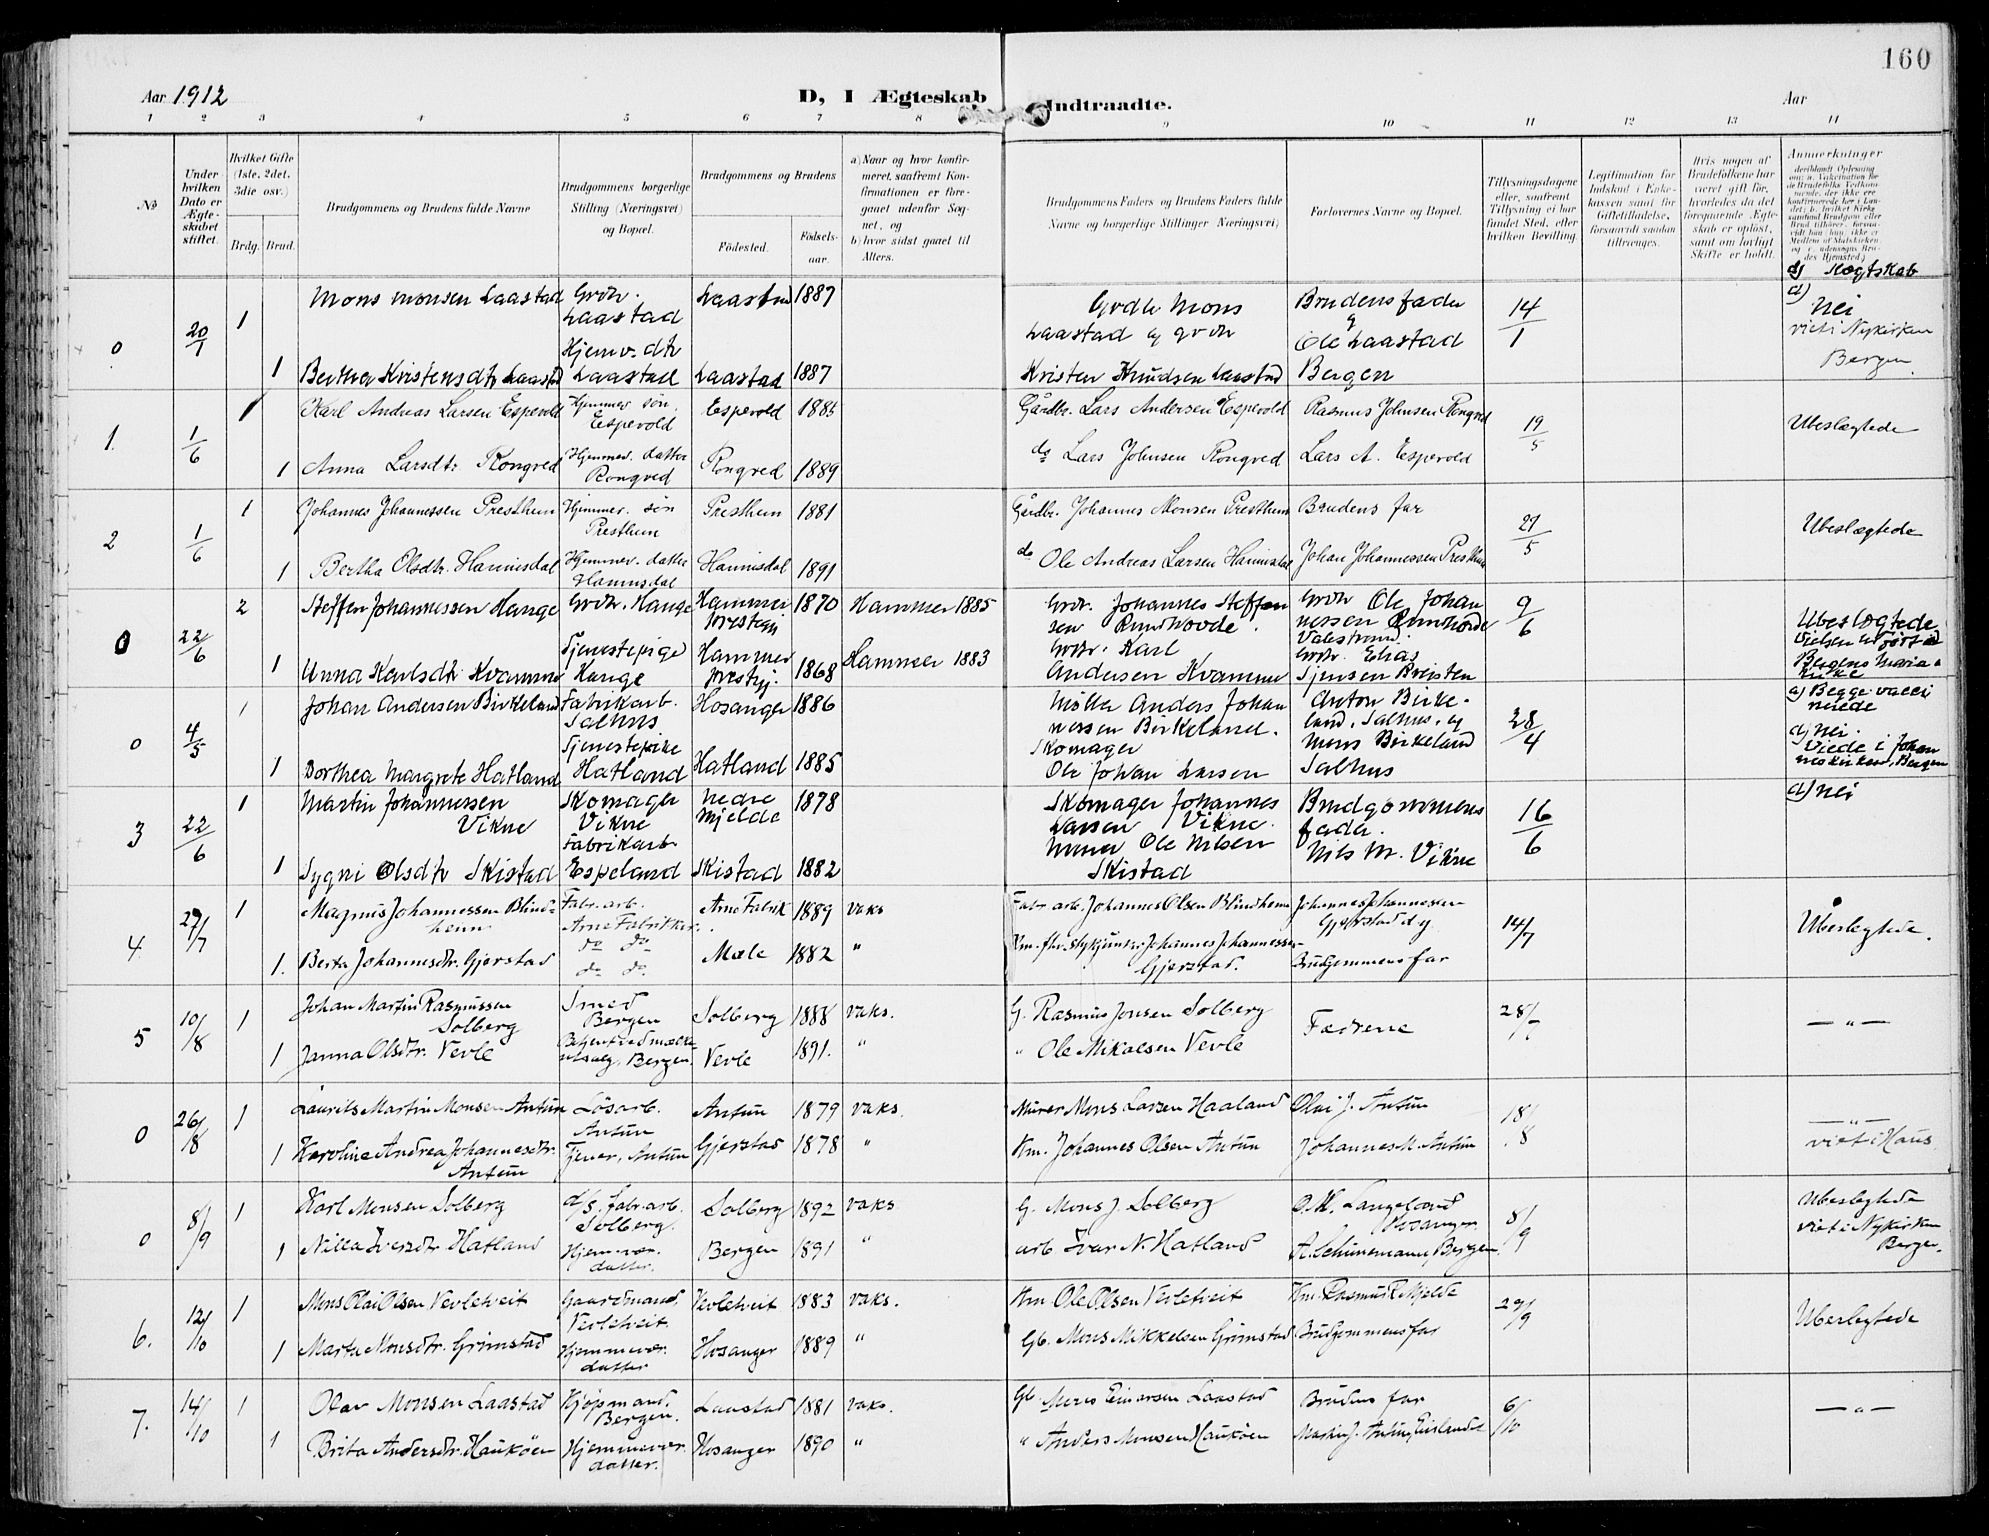 160
Aar 1912
D, I Ægteskab Indtraadte.
Aar
1 2 3 4 5 6 7 8 9 10 11 12 13 14
No
Under hvilken Dato er Ægteskabet stiftet.
Hvilket Gifte (1ste, 2det, 3die osv.)
Brdg. Brud.
Brudgommens og Brudens fulde Navne
Brudgommens borgerlige Stilling (Næringsvei) og Bopæl.
Brudgommens og Brudens
Födested. Födsels-aar.
a) Naar og hvor konfirmeret, saafremt Konfirmationen er foregaaet udenfor Sognet, og
b) hvor sidst gaaet til Alters.
Brudgommens Faders og Brudens Faders fulde Navne og borgerlige Stillinger (Næringsvei)
Forlovernes Navne og Bopæl.
Tillysningsdagene eller, saafremt Tillysning ei har fundet Sted, efter hvilken Bevilling.
Legitimation for Indskud i Enkekassen samt for Giftetilladelse, forsaavidt saadan tiltrænges.
Hvis nogen af Brudefolkene har været gift før, hvorledes da det foregaaende Ægteskab er opløst, samt om lovligt Skifte er holdt.
Anmerkninger
d) Slægtskab
0 20/1 1 Mons Monsen Laastad Grdbr. Laastad Laastad 1887 Grdbr Mons Laastad og grdbr Brudens fader og Ole Laastad Bergen 14/1 d) Nei viet i Nykirken Bergen.
1 Bertha Kristensdtr Laastad Hjemv. dtr Laastad Laastad 1887 Kristen Knudsen Laastad
1. 1/6 1 Karl Andreas Larsen Espevold Hjemmev. søn. Espevold Espevold 1885 Gårdbr. Lars Andersen Espevold Rasmus Johnsen Rongved 19/5 Ubeslægtede
1 Anna Larsdtr Rongved Hjemmev. datter Rongved Rongved 1889 do Lars Johnsen Rongved Lars A. Espevold
2 1/6 1 Johannes Johannessen Presthun Hjemmev. søn Presthun Presthun 1881 Gårdbr. Johannes Monsen Presthun Brudens far 27/5 Ubeslægtede
1 Bertha Olsdtr. Hannisdal Hjemmev. datter Hannisdal Hannisdal 1891 do Ole Andreas Larsen Hannisdal Johan Johannessen Presthun
0 22/6 2 Steffen Johannessen Hauge Grdbr. Hauge Hammer prestegj 1870 Hammer 1885 Grdr. Johannes Steffensen Rundhovde. Grdbr Ole Johannessen Rundhovde Valestrand. 9/6 Ubeslægtede
1 Anna Karlsdtr Kvamme Tjenestepige Hauge Hammer prestegj. 1868 Hammer 1883 Grdbr. Karl Andersen Kvamme Grdbr. Elias
0 4/5 1 Johan Andersen Birkeland Fabrikarb. Salhus Hosanger 1886 Møller Anders Johannessen Birkeland. Anton Birkeland, Salhus, og Mons Birkeland Salhus 28/4 a) Begge vaccinerede d) Nei. Viede i Johanneskirken, Bergen
1 Dorthea Margrete Hatland Tjenestepike Hatland Hatland 1885 Skomager Ole Johan Larsen
3 22/6 1 Martin Johannessen Vikne Skomager Vikne Nedre Mjelde 1878 Skomager Johannes Larsen Vikne. Brudgommens fader. Nils M. Vikne 16/6 d) Nei
1 Sygni Olsdtr Skistad Fabrikarb Espeland Skistad 1882 Murer Ole Nilsen Skistad
4. 27/7 1 Magnus Johannessen Blindheim Fabr. arb. Arne Fabrikker. Arne Fabrik 1889 vaks Fabr arb. Johannes Olsen Blindheim Johannes Johannessen Gjerstad og 14/7 Ubeslegtede.
1. Berta Johannesdtr. Gjerstad do do Mæle 1882 " Johannes Johannessen Gjerstad. Brudgommens far
5 10/8 1 Johan Martin Rasmussen Solberg Smed Bergen Solberg 1888 vaks. G. Rasmus Jonsen Solberg Fædrene 28/7 — " —
1 Janna Olsdtr. Vevle Bergen. Vevle 1891. " " Ole Mikalsen Vevle
0 26/8 1 Laurits Martin Monsen Antun Løsarb. Antun Antun 1879 vaks. Murer Mons Larsen Haaland Olai J. Antun 18/8 — " — viet i Haus
1 Karoline Andrea Johannesdtr. Antun Tjener, Antun Gjerstad 1878 " Km. Johannes Olsen Antun Johannes M. Antun
0 8/9 1 Karl Monsen Solberg d/s. fabr arb. Solberg. Solberg 1892 vaks G. Mons J. Solberg O. M. Langeland Hosanger 8/9 Ubeslegtede viet i Nykirken Bergen.
1 Nilla Iversdtr Hatland Hjemmevær. datter. Bergen 1891 " arb Ivar N. Hatland A. Schünemann, Bergen
6. 12/10 1 Mons Olai Olsen Vevletveit Gaardmand, Vevletveit. Vevletveit 1883 vaks. Km Ole Olsen Vevletveit Km. Rasmus R Mjelde 29/9 Ubeslegtede
1 Marta Monsdtr. Grimstad Hjemmevær. datter Hosanger 1889 " Gb. Mons Mikkelsen Grimstad Brudgommens far
7. 14/10 1 Olav Monsen Laastad Kjøpmand. Bergen. Laastad 1881 vaks. Gb. Mons Einarsen Laastad Brudens far 6/10 — " —
1 Brita Andersdtr. Hauköen Hjemmevær. datter. Hosanger 1890 " " Anders Monsen Hauköen Martin J. Antun,